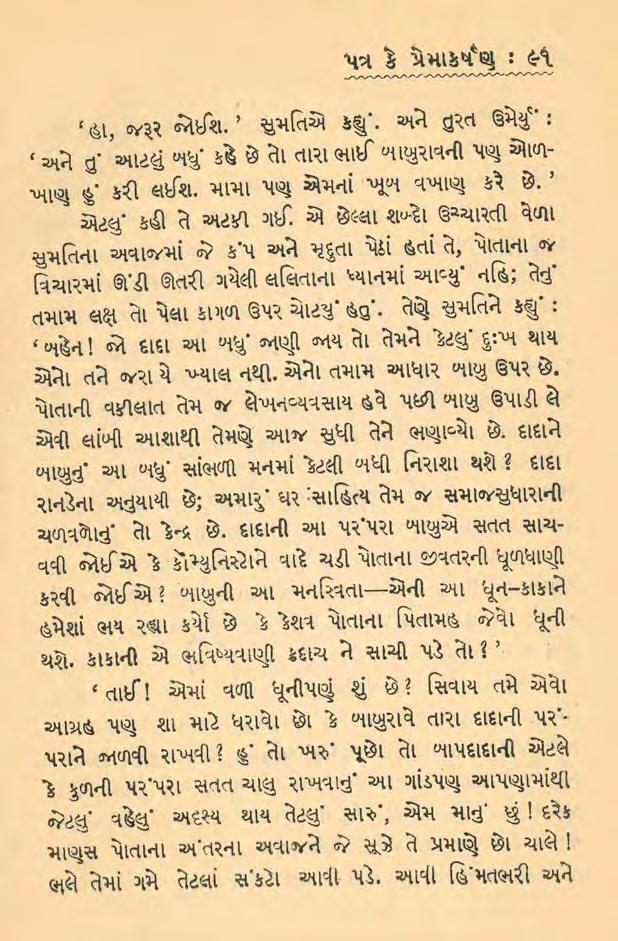 પત્ર કે પ્રેમાકર્ષણ : ૯૧
‘હા, જરૂર જોઈશ.’ સુમતિએ કહ્યું. અને તુરત ઉમેર્યું :
‘અને તું આટલું બધું કહે છે તો તારા ભાઈ બાબુરાવની પણ ઓળ-
ખાણ હું કરી લઈશ. મામા પણ એમનાં ખૂબ વખાણ કરે છે.’
એટલું કહી તે અટકી ગઈ. એ છેલ્લા શબ્દો ઉચ્ચારતી વેળા
સુમતિના અવાજમાં જે કંપ અને મૃદુતા પેઠાં હતાં તે, પોતાના જ
વિચારમાં ઊંડી ઊતરી ગયેલી લલિતાના ધ્યાનમાં આવ્યું નહિ; તેનું
તમામ લક્ષ તો પેલા કાગળ ઉપર ચોટયું હતું. તેણે સુમતિને કહ્યું :
‘બહેન! જો દાદા આ બધું જાણી જાય તો તેમને કેટલું દુઃખ થાય
એનો તને જરા યે ખ્યાલ નથી. એનો તમામ આધાર બાબુ ઉપર છે.
પોતાની વકીલાત તેમ જ લેખનવ્યવસાય હવે પછી બાબુ ઉપાડી લે
એવી લાંબી આશાથી તેમણે આજ સુધી તેને ભણાવ્યો છે. દાદાને
બાબુનું આ બધું સાંભળી મનમાં કેટલી બધી નિરાશા થશે? દાદા
રાનડેના અનુયાયી છે; અમારું ઘર સાહિત્ય તેમ જ સમાજસુધારાની
ચળવળોનું તો કેન્દ્ર છે. દાદાની આ પરંપરા બાબુએ સતત સાચ-
વવી જોઈએ કે કૉમ્યુનિસ્ટોને વાદે ચડી પોતાના જીવતરની ધૂળધાણી
કરવી જોઈએ? બાબુની આ મનસ્વિતા—એની આ ધૂન–કાકાને
હમેશાં ભય રહ્યા કર્યો છે કે કેશવ પોતાના પિતામહ જેવો ધૂની
થશે. કાકાની એ ભવિષ્યવાણી કદાચ ને સાચી પડે તો?’
‘તાઈ! એમાં વળી ધૂનીપણું શું છે? સિવાય તમે એવો
આગ્રહ પણ શા માટે ધરાવો છો કે બાબુરાવે તારા દાદાની પરં-
પરાને જાળવી રાખવી? હું તો ખરું પૂછો તો બાપદાદાની એટલે
કે કુળની પરંપરા સતત ચાલુ રાખવાનું આ ગાંડપણ આપણામાંથી
જેટલું વહેલું અદૃશ્ય થાય તેટલું સારું, એમ માનું છું! દરેક
માણસ પોતાના અંતરના અવાજને જે સૂઝે તે પ્રમાણે છો ચાલે!
ભલે તેમાં ગમે તેટલાં સંકટો આવી પડે. આવી હિંમતભરી અને